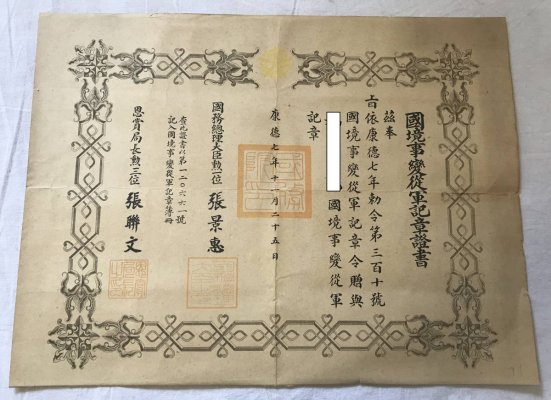 國境事變從軍記章證書
茲奉
旨依康德七年勅令第三百十號
國境事變從軍記章令贈與
國境事變從軍
記章
康德七年十一月二十五日
國務總理大臣勲一位 張景惠
查此證書以第一二〇六六一號
記入國境事變從軍記章簿冊
恩賞局長勲三位 張聯文